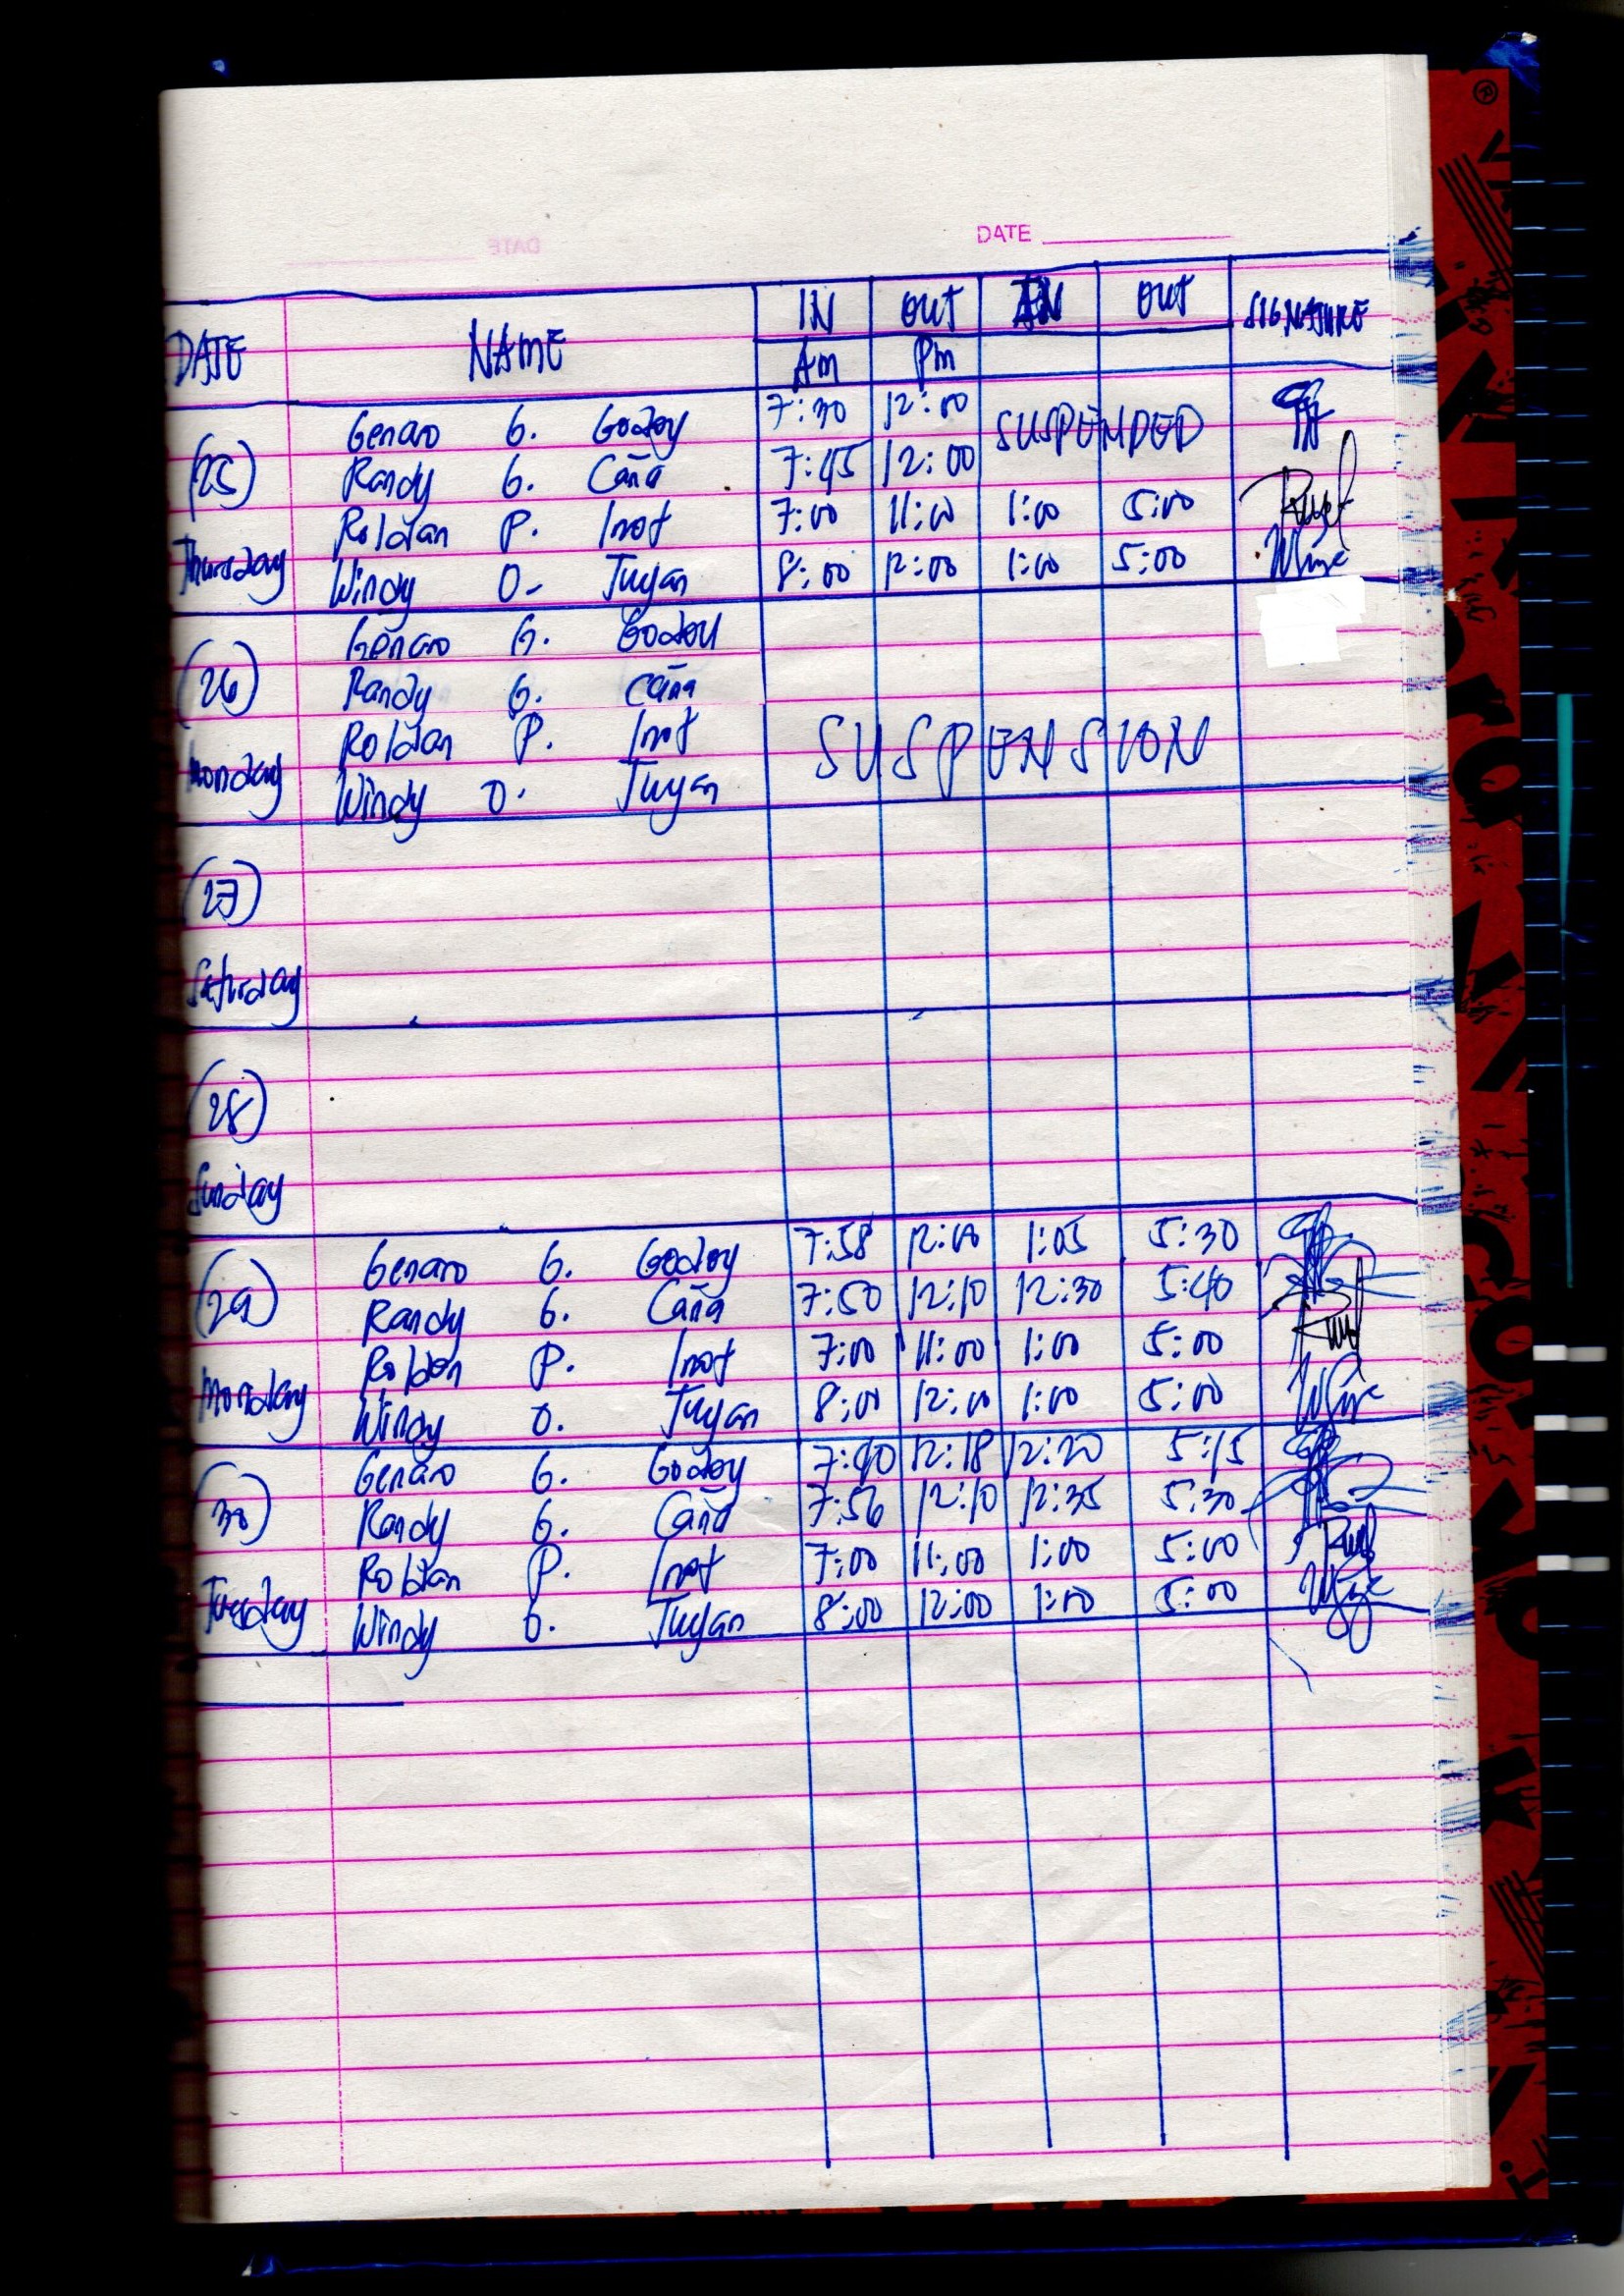 DATE
DATE NAME IN OUT IN OUT SIGNATURE
Am Pm
Genaro G. Godoy 7:30 12:00 SUSPENDED
(25) Randy G. Caña 7:45 12:00
Roldan P. Inot 7:00 11:00 1:00 5:00
Thursday Windy O- Tuyan 8:00 12:00 1:00 5:00
Genaro G. Godoy
(26) Randy G. Caña
Roldan P. Inot SUSPENSION
Monday Windy O. Tuyan
(27)
Saturday
(28)
Sunday
Genaro G. Godoy 7:58 12:10 1:05 5:30
(29) Randy G. Caña 7:50 12:10 12:30 5:40
Roldan P. Inot 7:00 11:00 1:00 5:00
Monday Windy O. Tuyan 8:00 12:00 1:00 5:00
Genaro G. Godoy 7:40 12:18 12:20 5:15
(30) Randy G. Caña 7:56 12:10 12:35 5:30
Roldan P. Inot 7:00 11:00 1:00 5:00
Tuesday Windy O. Tuyan 8:00 12:00 1:00 5:00